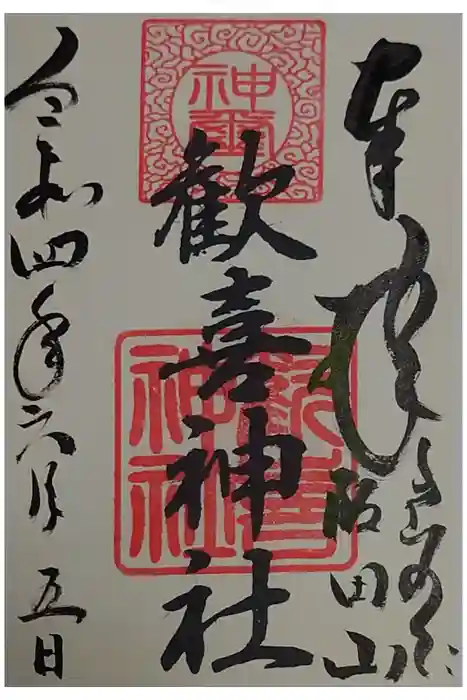 奉拝
阪田山
歓喜神社
歓喜
神社
令和四年六月五日